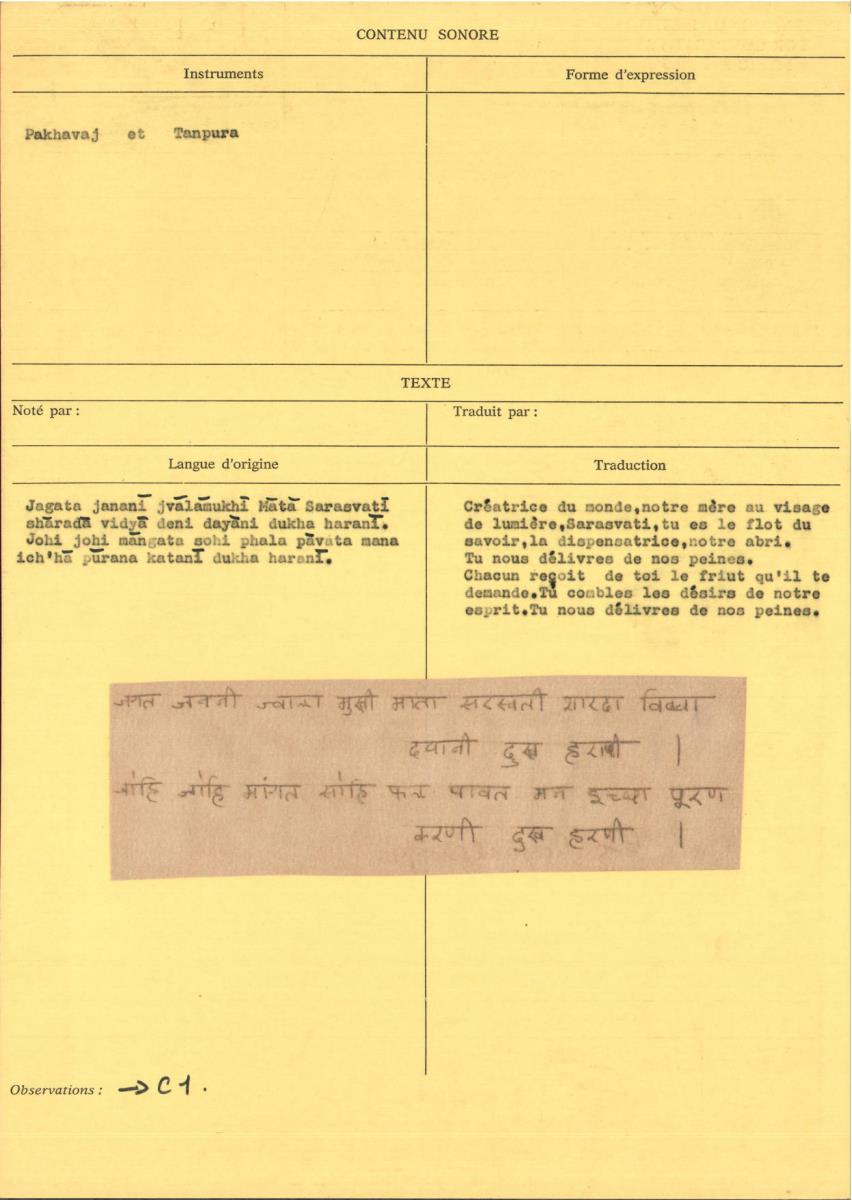 CONTENU SONORE
Instruments
Forme d'expression
Pakhavaj et Tanpura
TEXTE
Noté par :
Traduit par :
Langue d'origine
Traduction
Jagata jananī jvālāmukhī Mātā Sarasvatī
shāradā vidyā deni dayāni dukha haranī.
Johi johi māngata sohi phala pāvata mana
ich'hā pūrana katanī dukha haranī.
Créatrice du monde,notre mère au visage
de lumière,Sarasvati,tu es le flot du
savoir,la dispensatrice,notre abri.
Tu nous délivres de nos peines.
Chacun reçoit de toi le friut qu'il te
demande.Tu combles les désirs de notre
esprit.Tu nous délivres de nos peines.
जगत जननी ज्वाला मुखी माता सरस्वती शारदा विद्या
दयानी दुख हरणी |
जोहि जोहि मांगत सोहि फल पावत मन इच्छा पूरण
करणी दुख हरणी |
Observations : → C 1 .